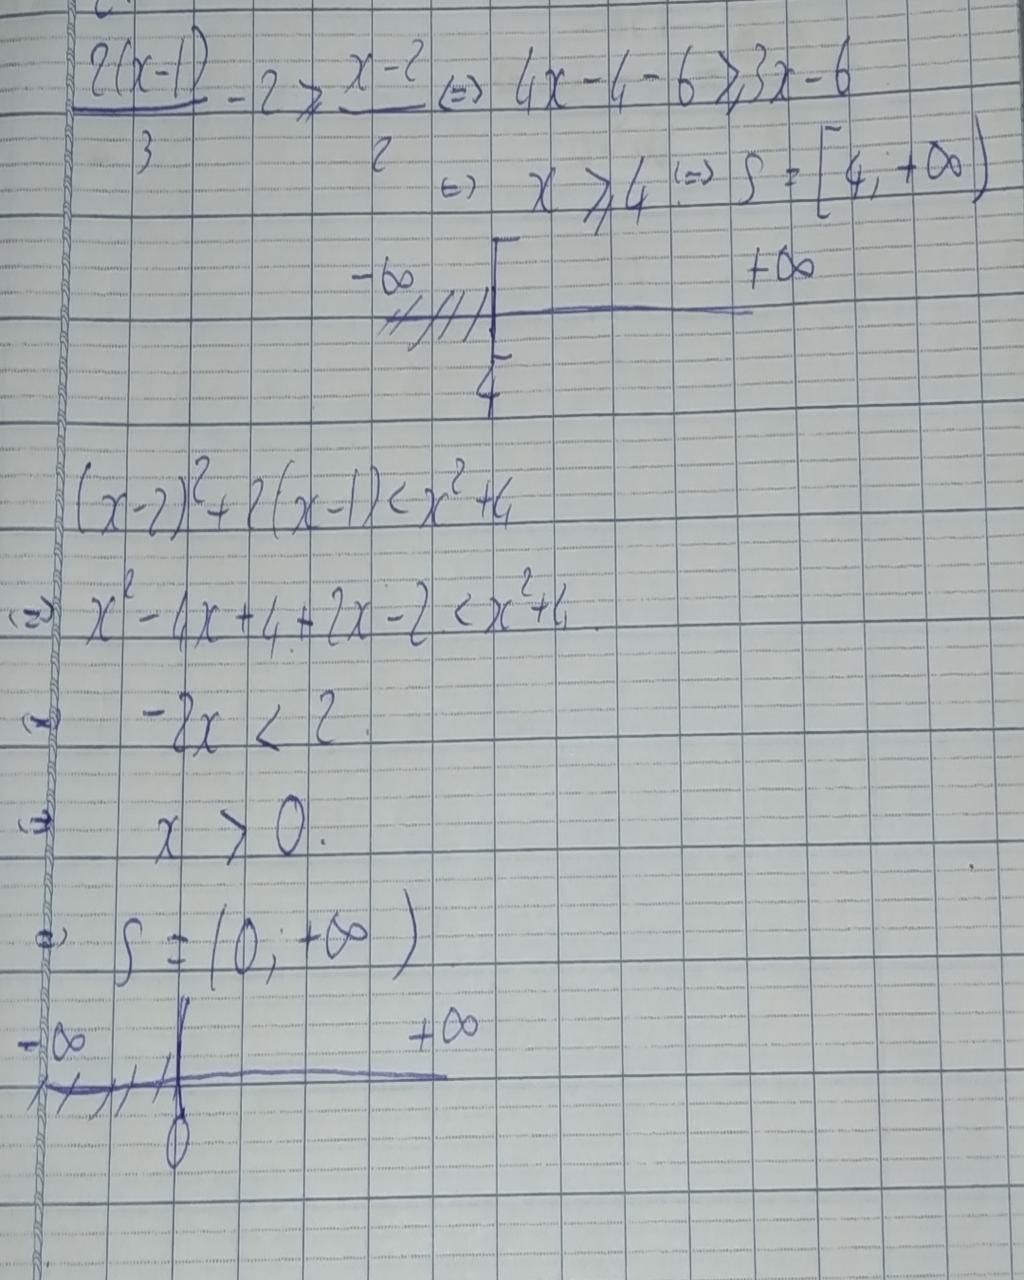 2(x-1)/3 - 2 ⩾ (x-2)/2 (=) 4x-4-6 ⩾ 3x-6
(=) x ⩾ 4 (=) S = [4; +∞)
-∞ +∞
4
(x-2)² + 2(x-1) < x² + 4
(=) x² - 4x + 4 + 2x - 2 < x² + 4
(=) -2x < 2
(=) x > 0.
=) S = (0; +∞)
-∞ +∞
0